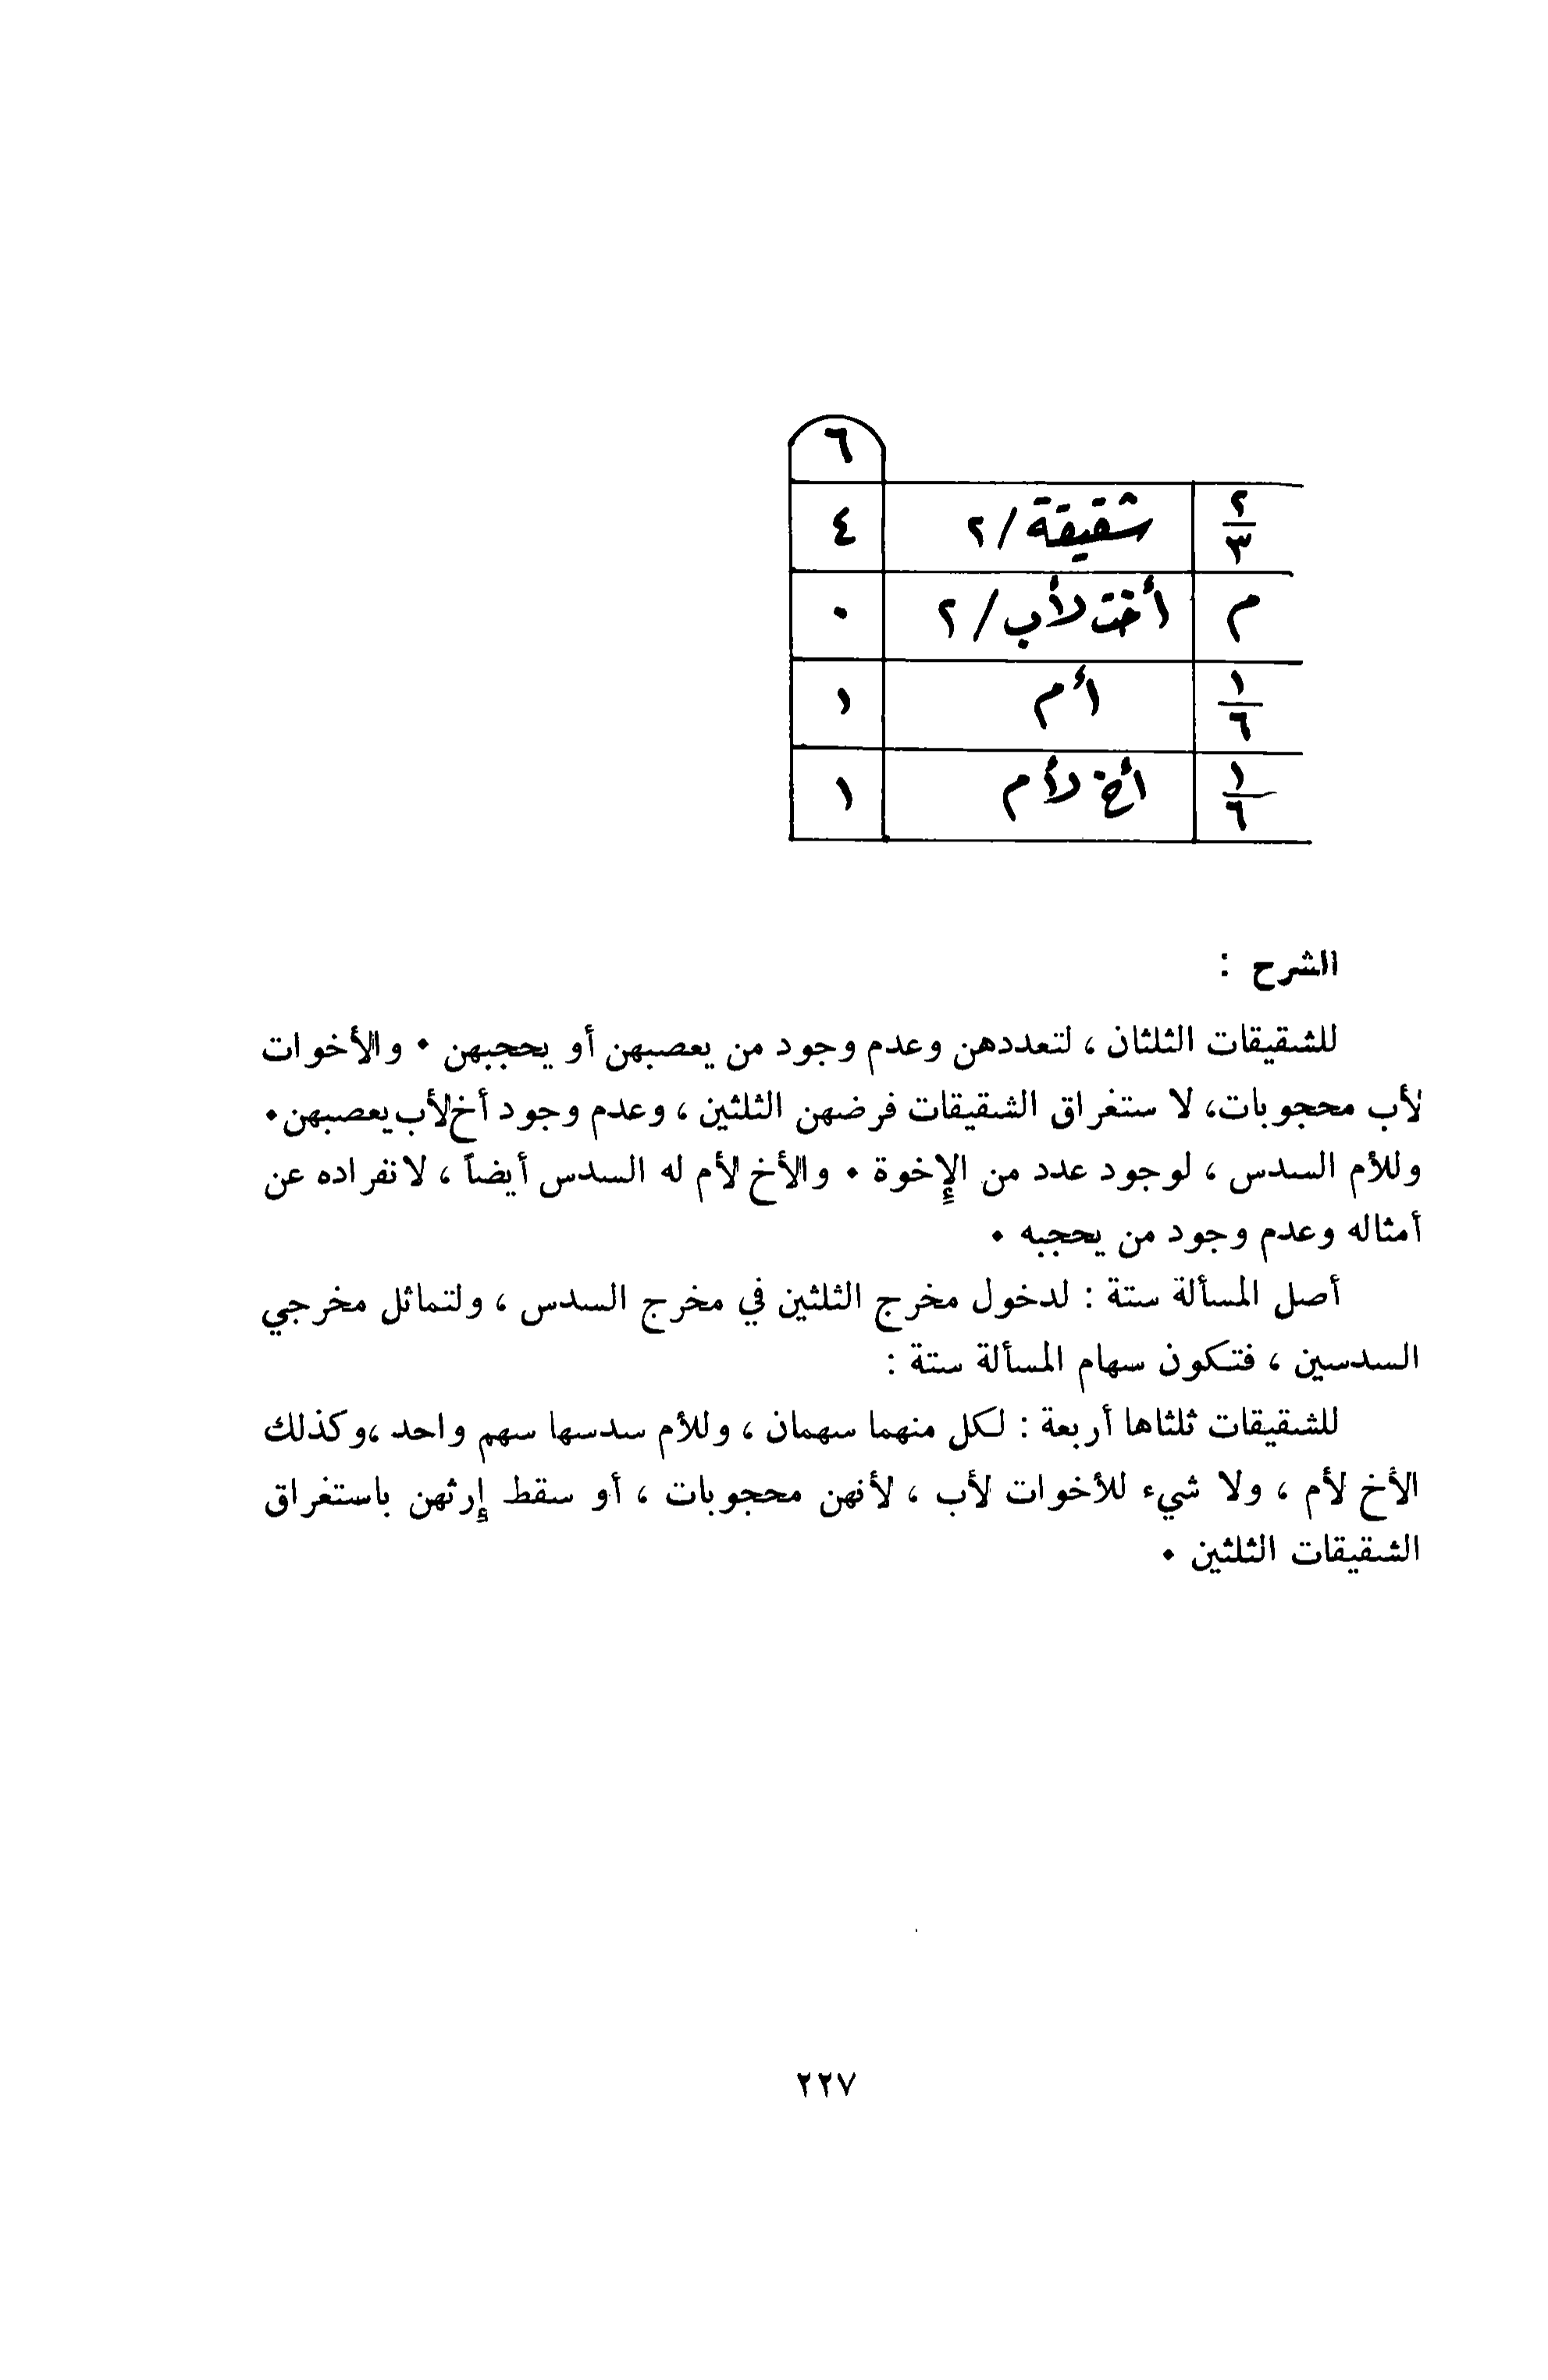 ٦
٢/٣ شقيقة / ٢ ٤
م أخت لأب / ٢ ٠
١/٦ أم ١
١/٦ أخ لأم ١
الشرح :
للشقيقات الثلثان ، لتعددهن وعدم وجود من يعصبهن أو يحجبهن ٠ والأخوات
لأب محجوبات، لا ستغراق الشقيقات فرضهن الثلثين ، وعدم وجود أخ لأب يعصبهن ٠
وللأم السدس ، لوجود عدد من الإخوة ٠ والأخ لأم له السدس أيضاً ، لانفراده عن
أمثاله وعدم وجود من يحجبه ٠
أصل المسألة ستة : لدخول مخرج الثلثين في مخرج السدس ، ولتماثل مخرجي
السدسين ، فتكون سهام المسألة ستة :
للشقيقات ثلثاها أربعة : لكل منهما سهمان ، وللأم سدسها سهم واحد ،وكذلك
الأخ لأم ، ولا شيء للأخوات لأب ، لأنهن محجوبات ، أو سقط إرثهن باستغراق
الشقيقات الثلثين ٠
٢٢٧